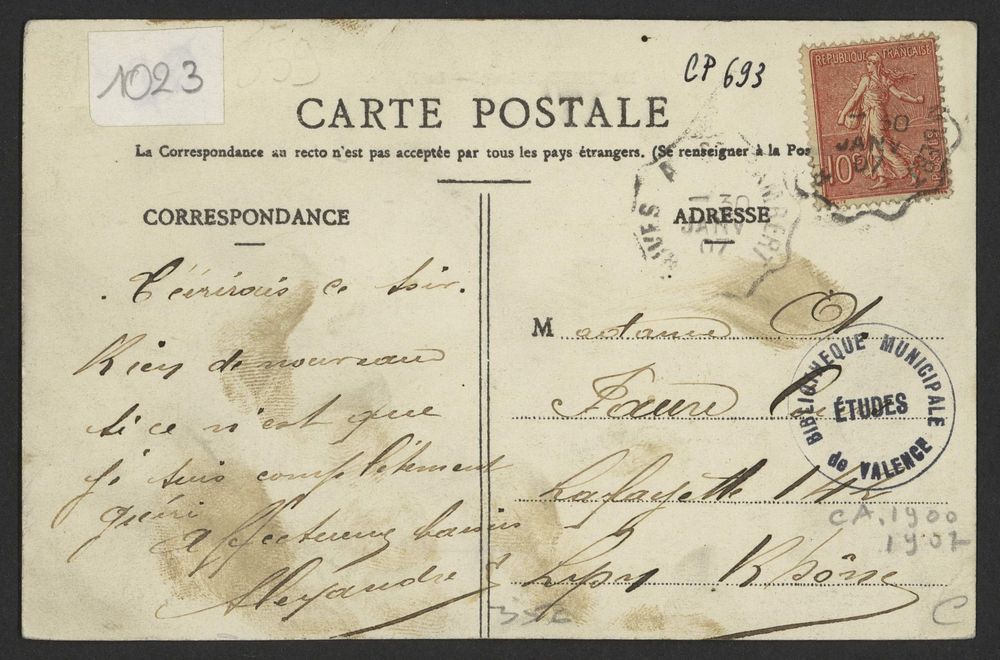 1023
CP 693
REPUBLIQUE FRANÇAISE
10
POSTES
CARTE POSTALE
La Correspondance au recto n'est pas acceptée par tous les pays étrangers. (Se renseigner à la Pos
30
JANV
07
30
JANV
07
CORRESPONDANCE
T'écrirais ce soir.
Rien de nouveau
si ce n'est que
je suis complètement
guéri
Affectueux baisers
Alexandre
ADRESSE
Madame
Faure
Lafayette
Lyon Rhône
BIBLIOTHEQUE MUNICIPALE
ÉTUDES
de VALENCE
CA. 1900
1907
352
C